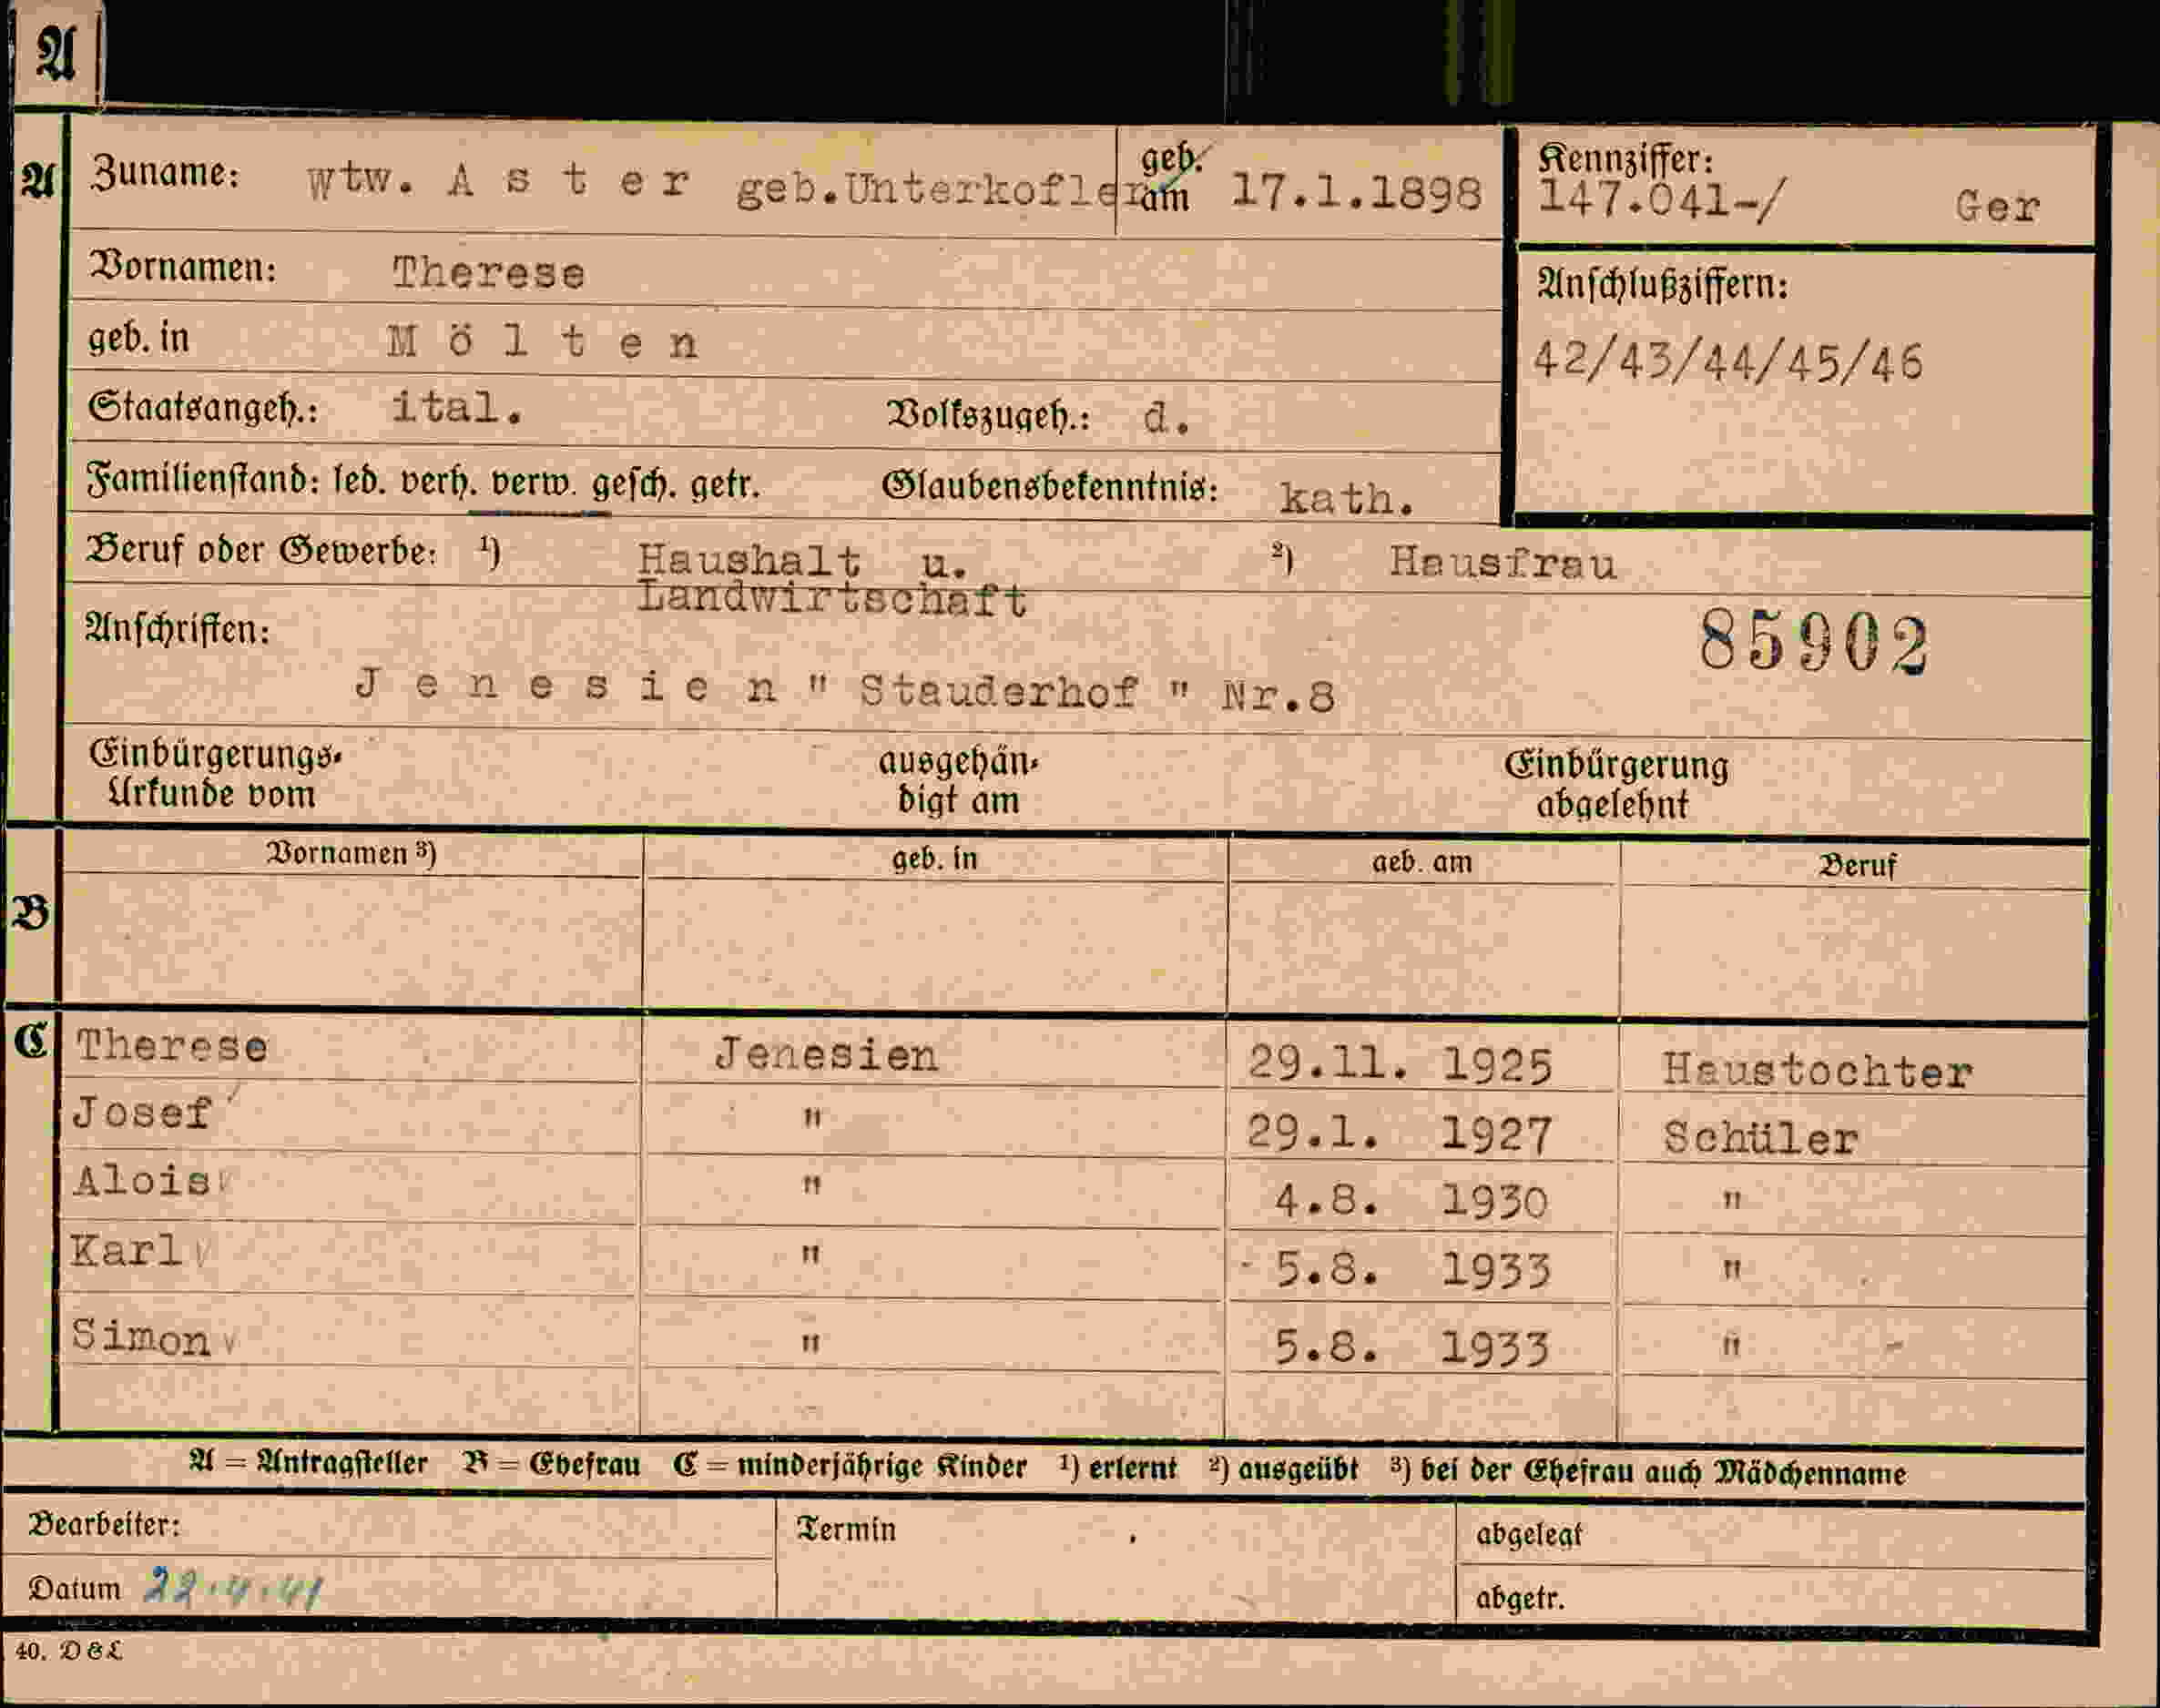 A
A Zuname: wtw. A s t e r geb.Unterkofler geb. am 17.1.1898 Kennziffer:
147.041-/ Ger
Vornamen: Therese
Anschlußziffern:
geb. in M ö l t e n
42/43/44/45/46
Staatsangeh.: ital. Volkszugeh.: d.
Familienstand: led. verh. verw. gesch. getr. Glaubensbekenntnis: kath.
Beruf oder Gewerbe: ¹) Haushalt u. ²) Hausfrau
Landwirtschaft
Anschriften: 85902
J e n e s i e n " Stauderhof " Nr.8
Einbürgerungs- ausgehän- Einbürgerung
Urkunde vom digt am abgelehnt
Vornamen ³) geb. in geb. am Beruf
B
C Therese Jenesien 29.11. 1925 Haustochter
Josef " 29.1. 1927 Schüler
Alois " 4.8. 1930 "
Karl " 5.8. 1933 "
Simon " 5.8. 1933 "
A = Antragsteller B = Ehefrau C = minderjährige Kinder ¹) erlernt ²) ausgeübt ³) bei der Ehefrau auch Mädchenname
Bearbeiter: Termin abgelegt
Datum 22.4.41 abgetr.
40. D & L